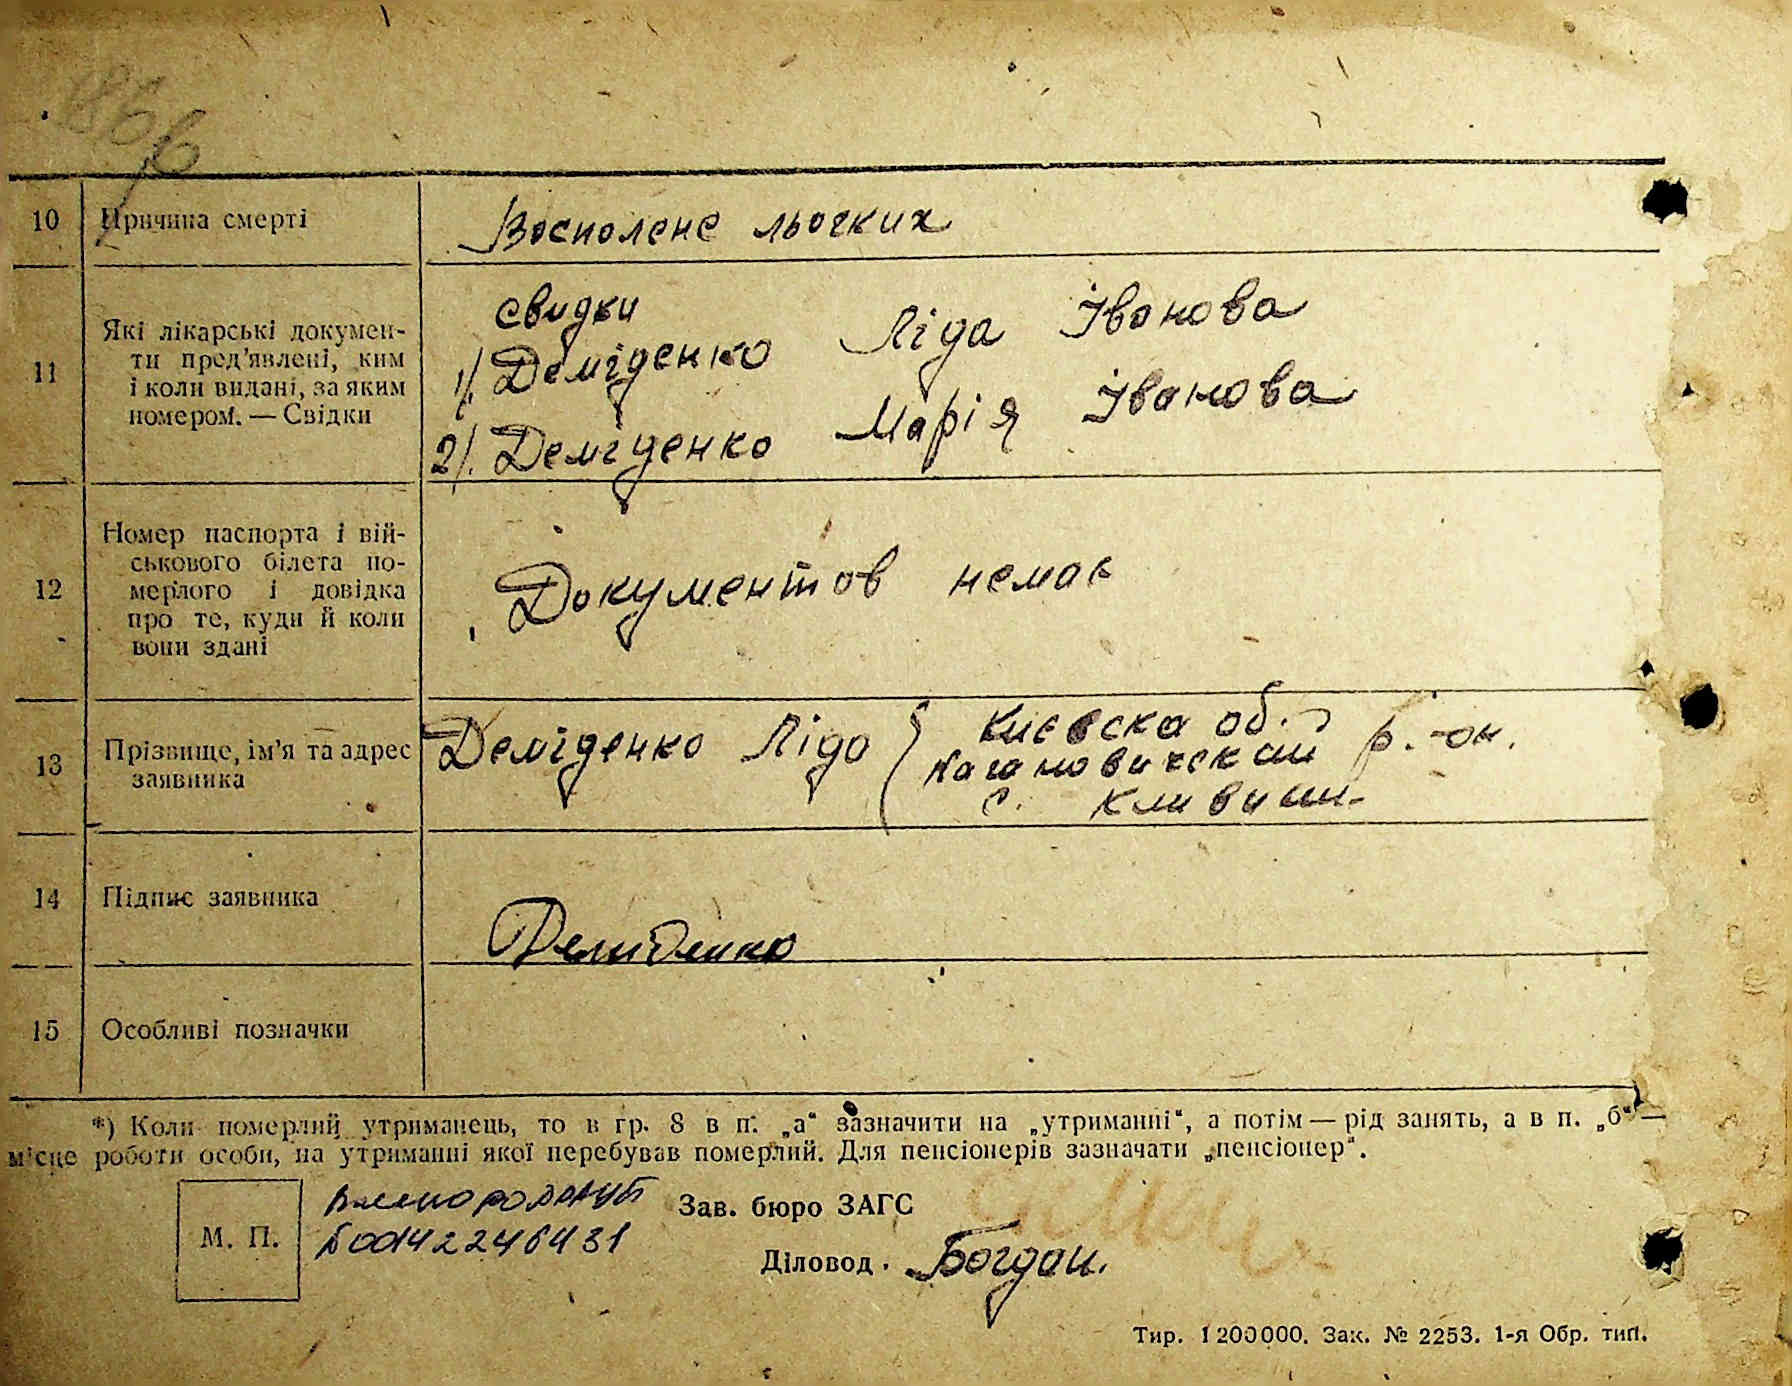 10 Причина смерті Восполене льогких
11 Які лікарські докумен-
ти пред'явлені, ким
і коли видані, за яким
номером. — Свідки
свидки
1/. Деміденко Ліда Іванова
2/. Деміденко Марія Іванова
12 Номер паспорта і вій-
ськового білета по-
мерлого і довідка
про те, куди й коли
вони здані
Документов немає
13 Прізвище, ім'я та адрес
заявника
Деміденко Лідо
Києвска об.
Кагановичский р.-он.
с.
14 Підпис заявника
Демиденко
15 Особливі позначки
*) Коли померлий утриманець, то в гр. 8 в п. „а“ зазначити на „утриманні“, а потім — рід занять, а в п. „б“ —
місце роботи особи, на утриманні якої перебував померлий. Для пенсіонерів зазначати „пенсіонер“.
М. П.
Зав. бюро ЗАГС
Діловод. Богдан.
Тир. 1200000. Зак. № 2253. 1-я Обр. тип.